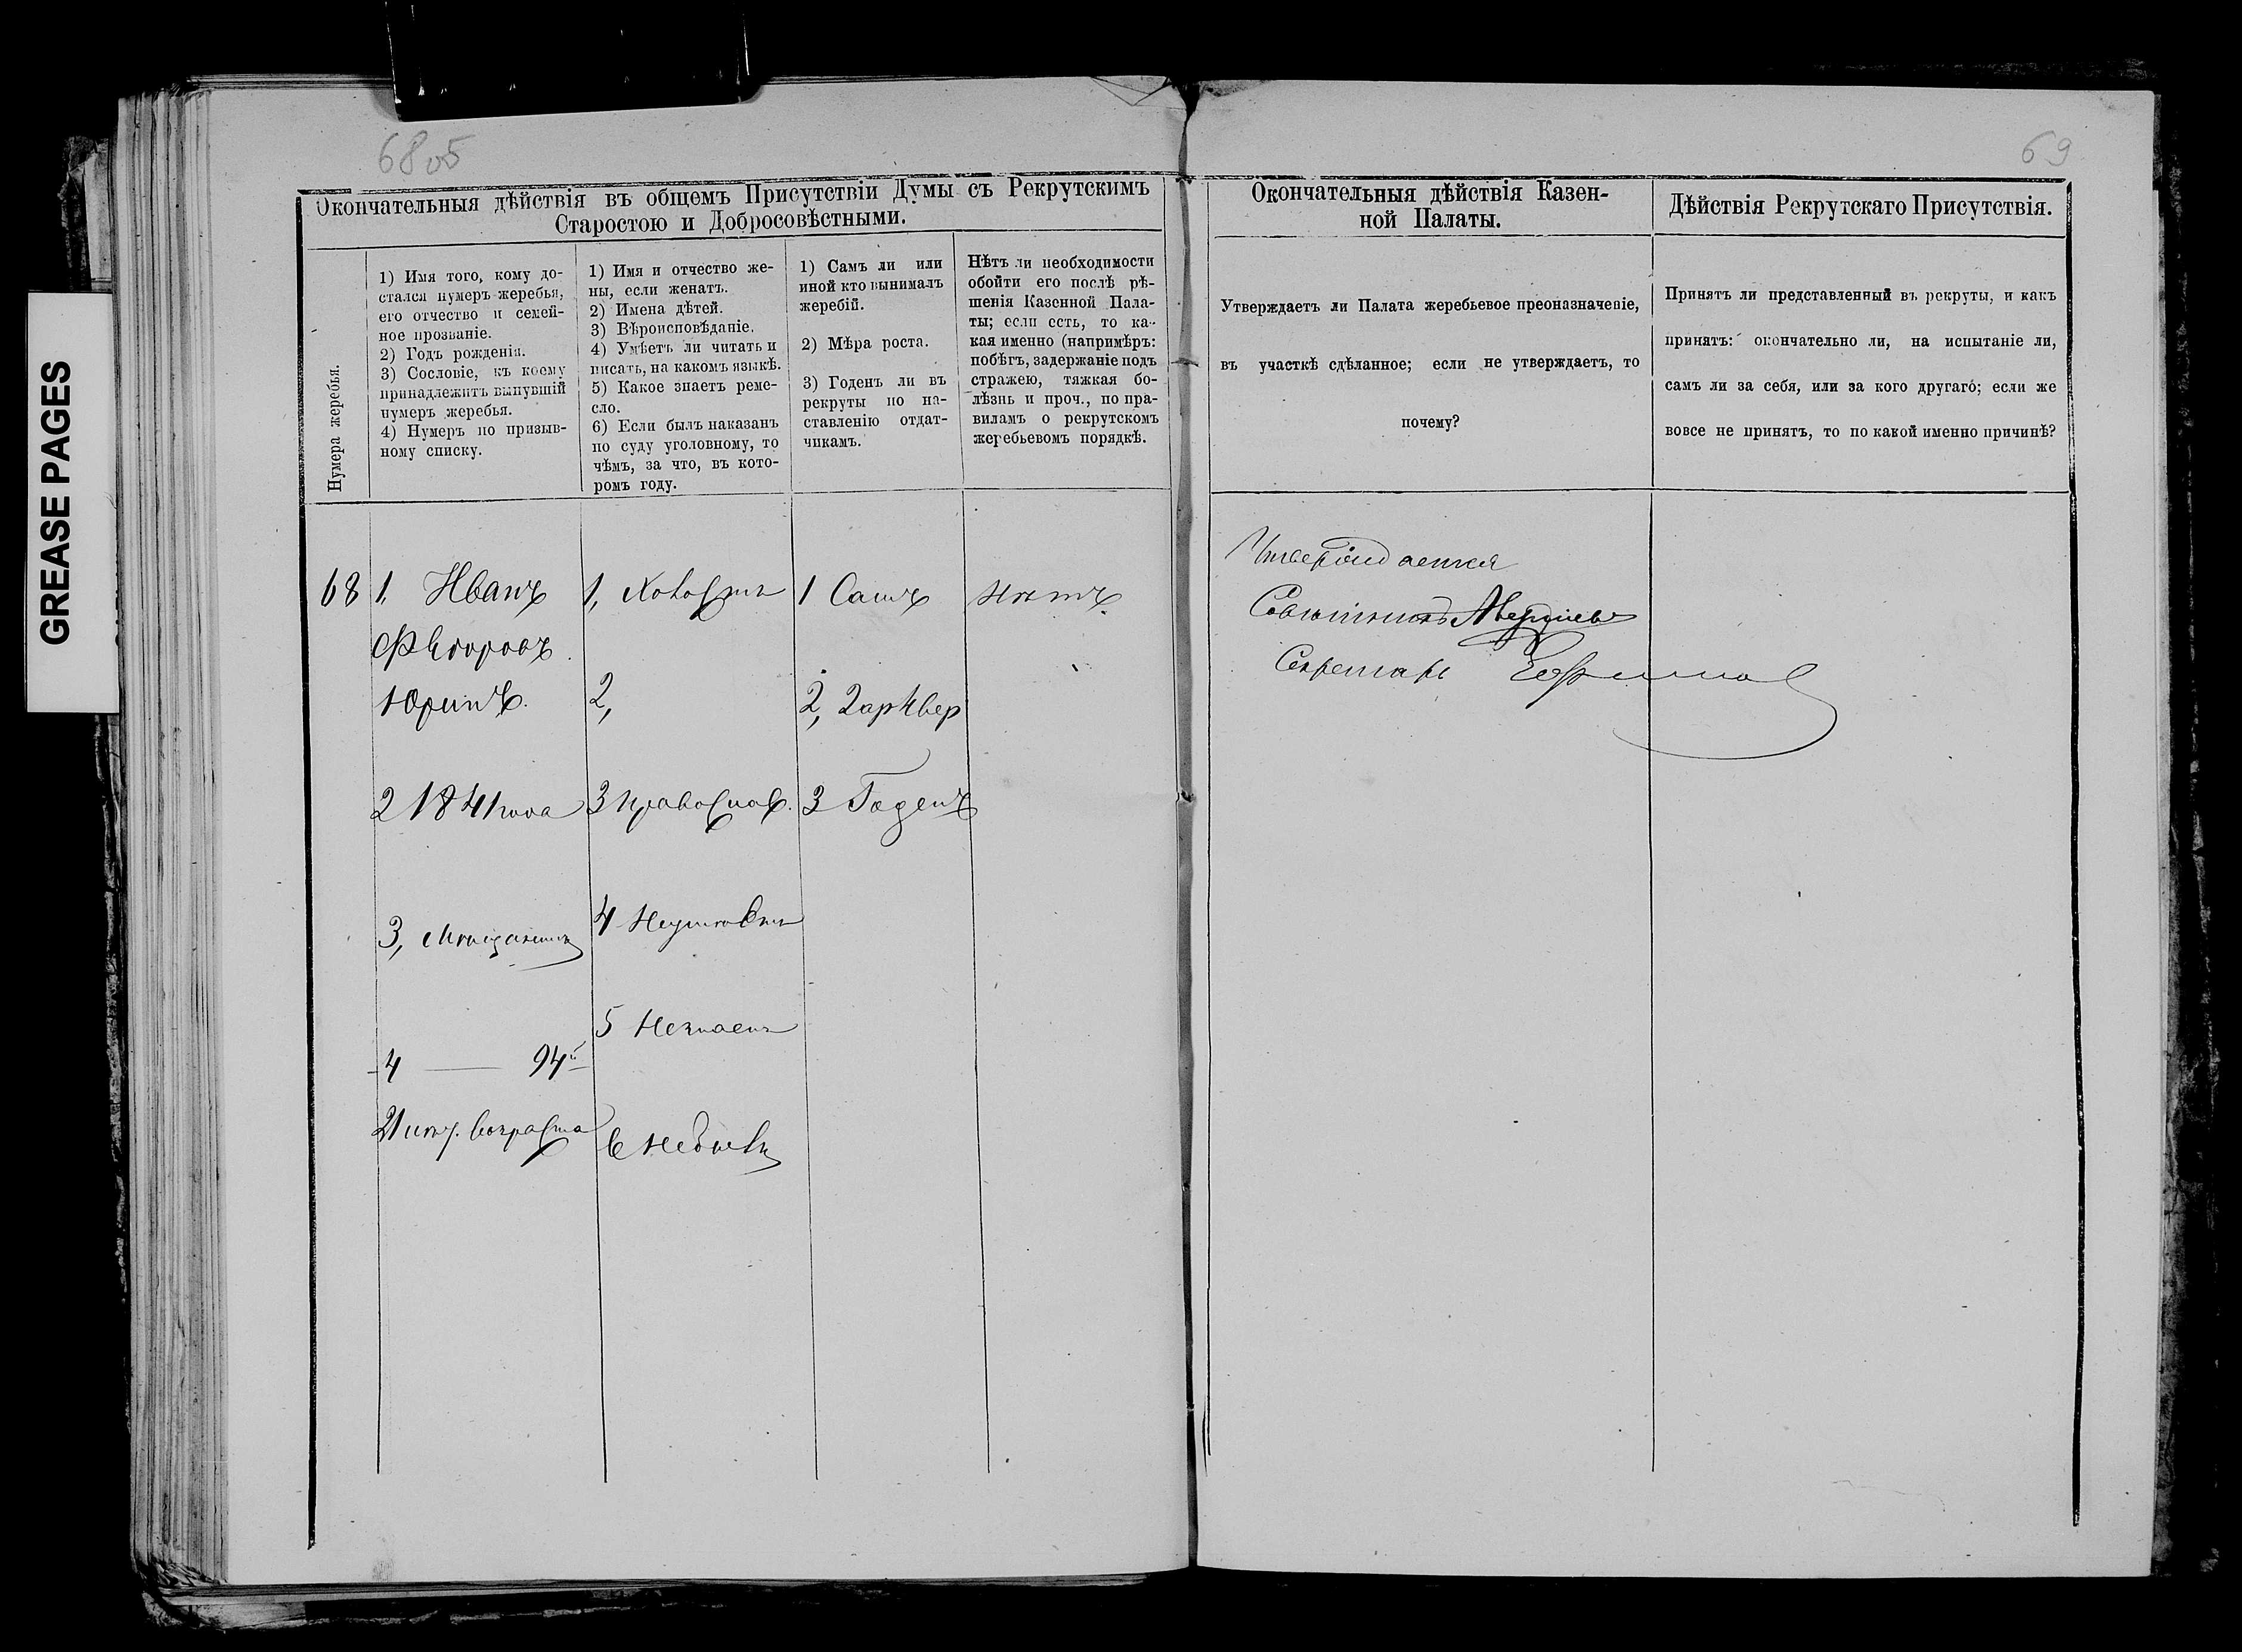 GREASE PAGES
68 об
69
Окончательныя дѣйствія въ общемъ Присутствіи Думы съ Рекрутскимъ
Старостою и Добросовѣстными.
Нумера жеребья.
1) Имя того, кому до-
стался нумеръ жеребья,
его отчество и семей-
ное прозваніе.
2) Годъ рожденія.
3) Сословіе, къ коему
принадлежитъ вынувшій
нумеръ жеребья.
4) Нумеръ по призыв-
ному списку.
1) Имя и отчество же-
ны, если женатъ.
2) Имена дѣтей.
3) Вѣроисповѣданіе.
4) Умѣетъ ли читать и
писать, на какомъ языкѣ.
5) Какое знаетъ реме-
сло.
6) Если былъ наказанъ
по суду уголовному, то
чѣмъ, за что, въ кото-
ромъ году.
1) Самъ ли или
иной кто вынималъ
жеребій.
2) Мѣра роста.
3) Годенъ ли въ
рекруты по на-
ставленію отдат-
чикамъ.
Нѣтъ ли необходимости
обойти его послѣ рѣ-
шенія Казенной Пала-
ты; если есть, то ка-
кая именно (напримѣръ:
побѣгъ, задержаніе подъ
стражею, тяжкая бо-
лѣзнь и проч., по пра-
виламъ о рекрутскомъ
жеребьевомъ порядкѣ.
68
1, Иванъ
Федоровъ
Юринъ.
2 1841 года
3, Мѣщанинъ
4 — 94й
21 лѣтн. возраста
1, Холостъ
2,
3 Православ.
4 Неумѣетъ
5 Незнаетъ
6 Небылъ
1 Самъ
2, 2 ар 4 вер
3 Годенъ
Нѣтъ.
Окончательныя дѣйствія Казен-
ной Палаты.
Утверждаетъ ли Палата жеребьевое преоназначеніе,
въ участкѣ сдѣланное; если не утверждаетъ, то
почему?
Утверждается
Совѣтникъ
Секретарь
Дѣйствія Рекрутскаго Присутствія.
Принятъ ли представленный въ рекруты, и какъ
принятъ: окончательно ли, на испытаніе ли,
самъ ли за себя, или за кого другаго; если же
вовсе не принятъ, то по какой именно причинѣ?